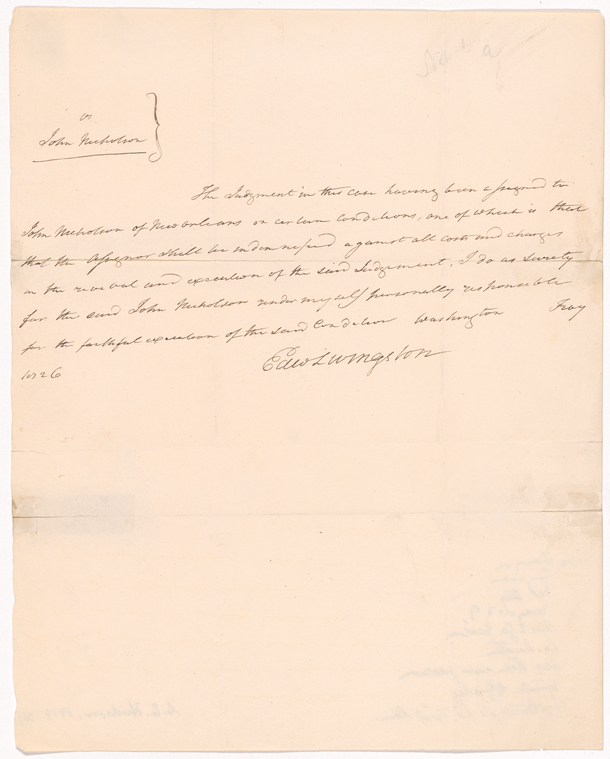 vs
John Nicholson
The Judgment in this case having been assigned to
John Nicholson of New orleans on certain Conditions, one of which is that
that the Assignor shall be indemnified against all costs and charges
in the revival and execution of the said Judgement, I do as surety
for the said John Nicholson render myself personally responsible
for the faithful execution of the said Condition Washington
1826
Edw Livingston